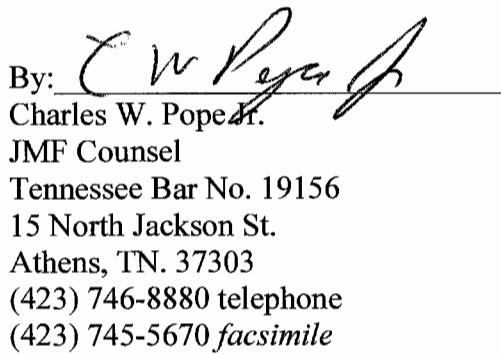 By: C W Pope Jr
Charles W. Pope Jr.
JMF Counsel
Tennessee Bar No. 19156
15 North Jackson St.
Athens, TN. 37303
(423) 746-8880 telephone
(423) 745-5670 facsimile